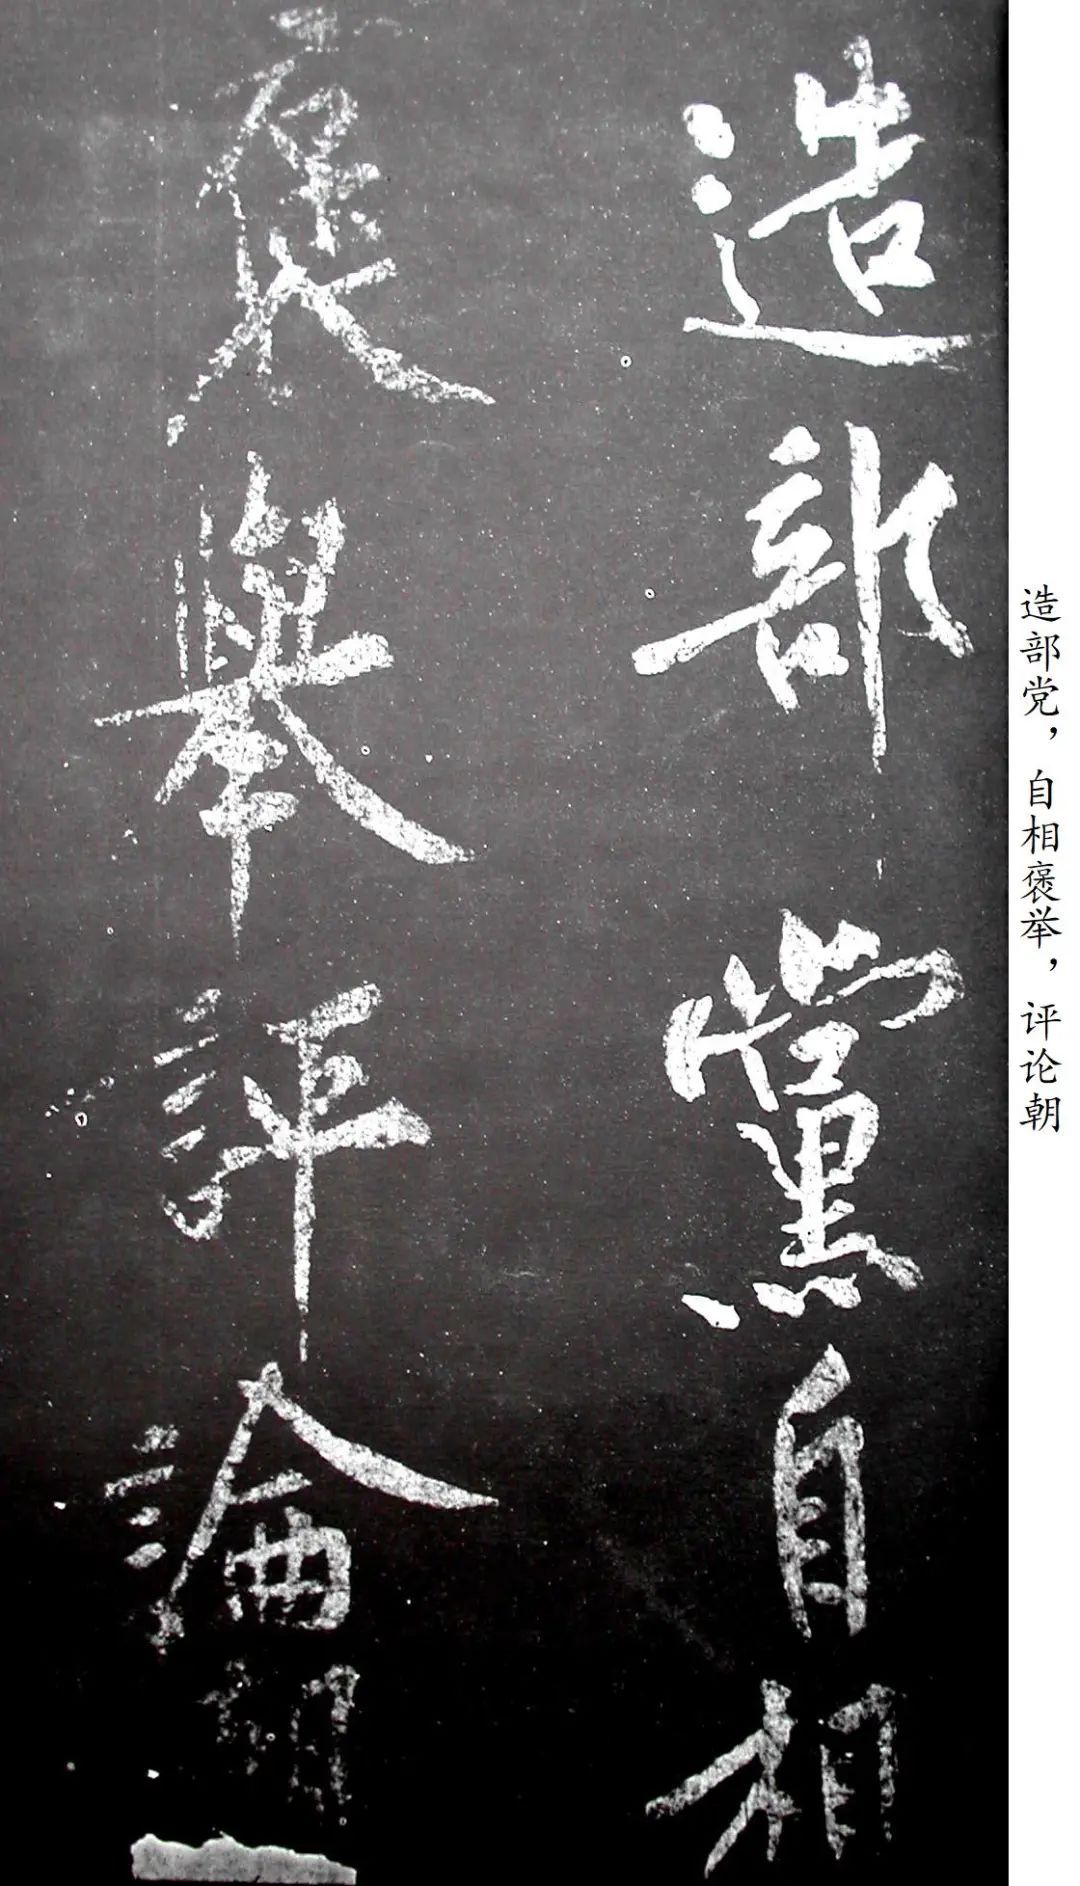 造部黨自相
褒舉評論朝
造部党，自相褒举，评论朝